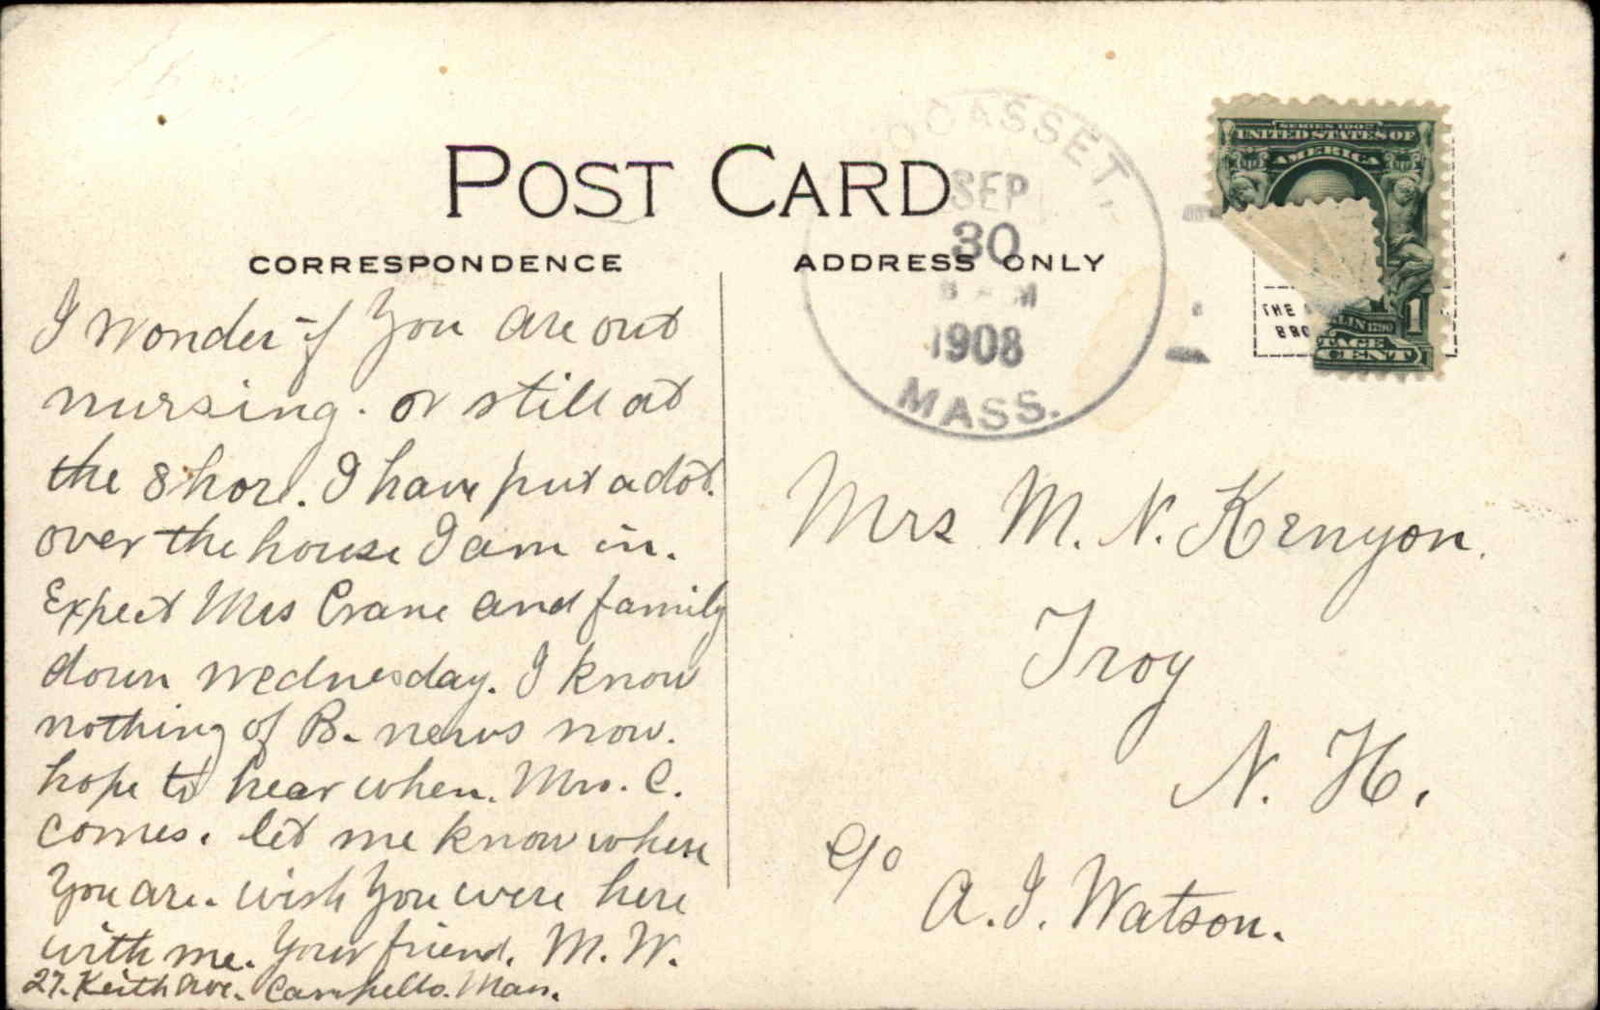 POST CARD
CORRESPONDENCE
ADDRESS ONLY
OCASSET,
SEP
30
M
1908
MASS.
SERIES 1902
UNITED STATES OF
AMERICA
LIN 1790
1
TAGE
CENT
THE
BRO
I wonder if you are out
nursing. or still at
the shore. I have put a dot.
over the house I am in.
Expect Mrs Crane and family
down wednesday. I know
nothing of B. news now.
hope to hear when. Mrs. C.
comes. let me know where
You are. wish you were here
with me. Your friend. M. W.
27. Keith Ave. Campello. Mass.
Mrs M. N. Kenyon.
Troy
N. H.
c/o
A. J. Watson.